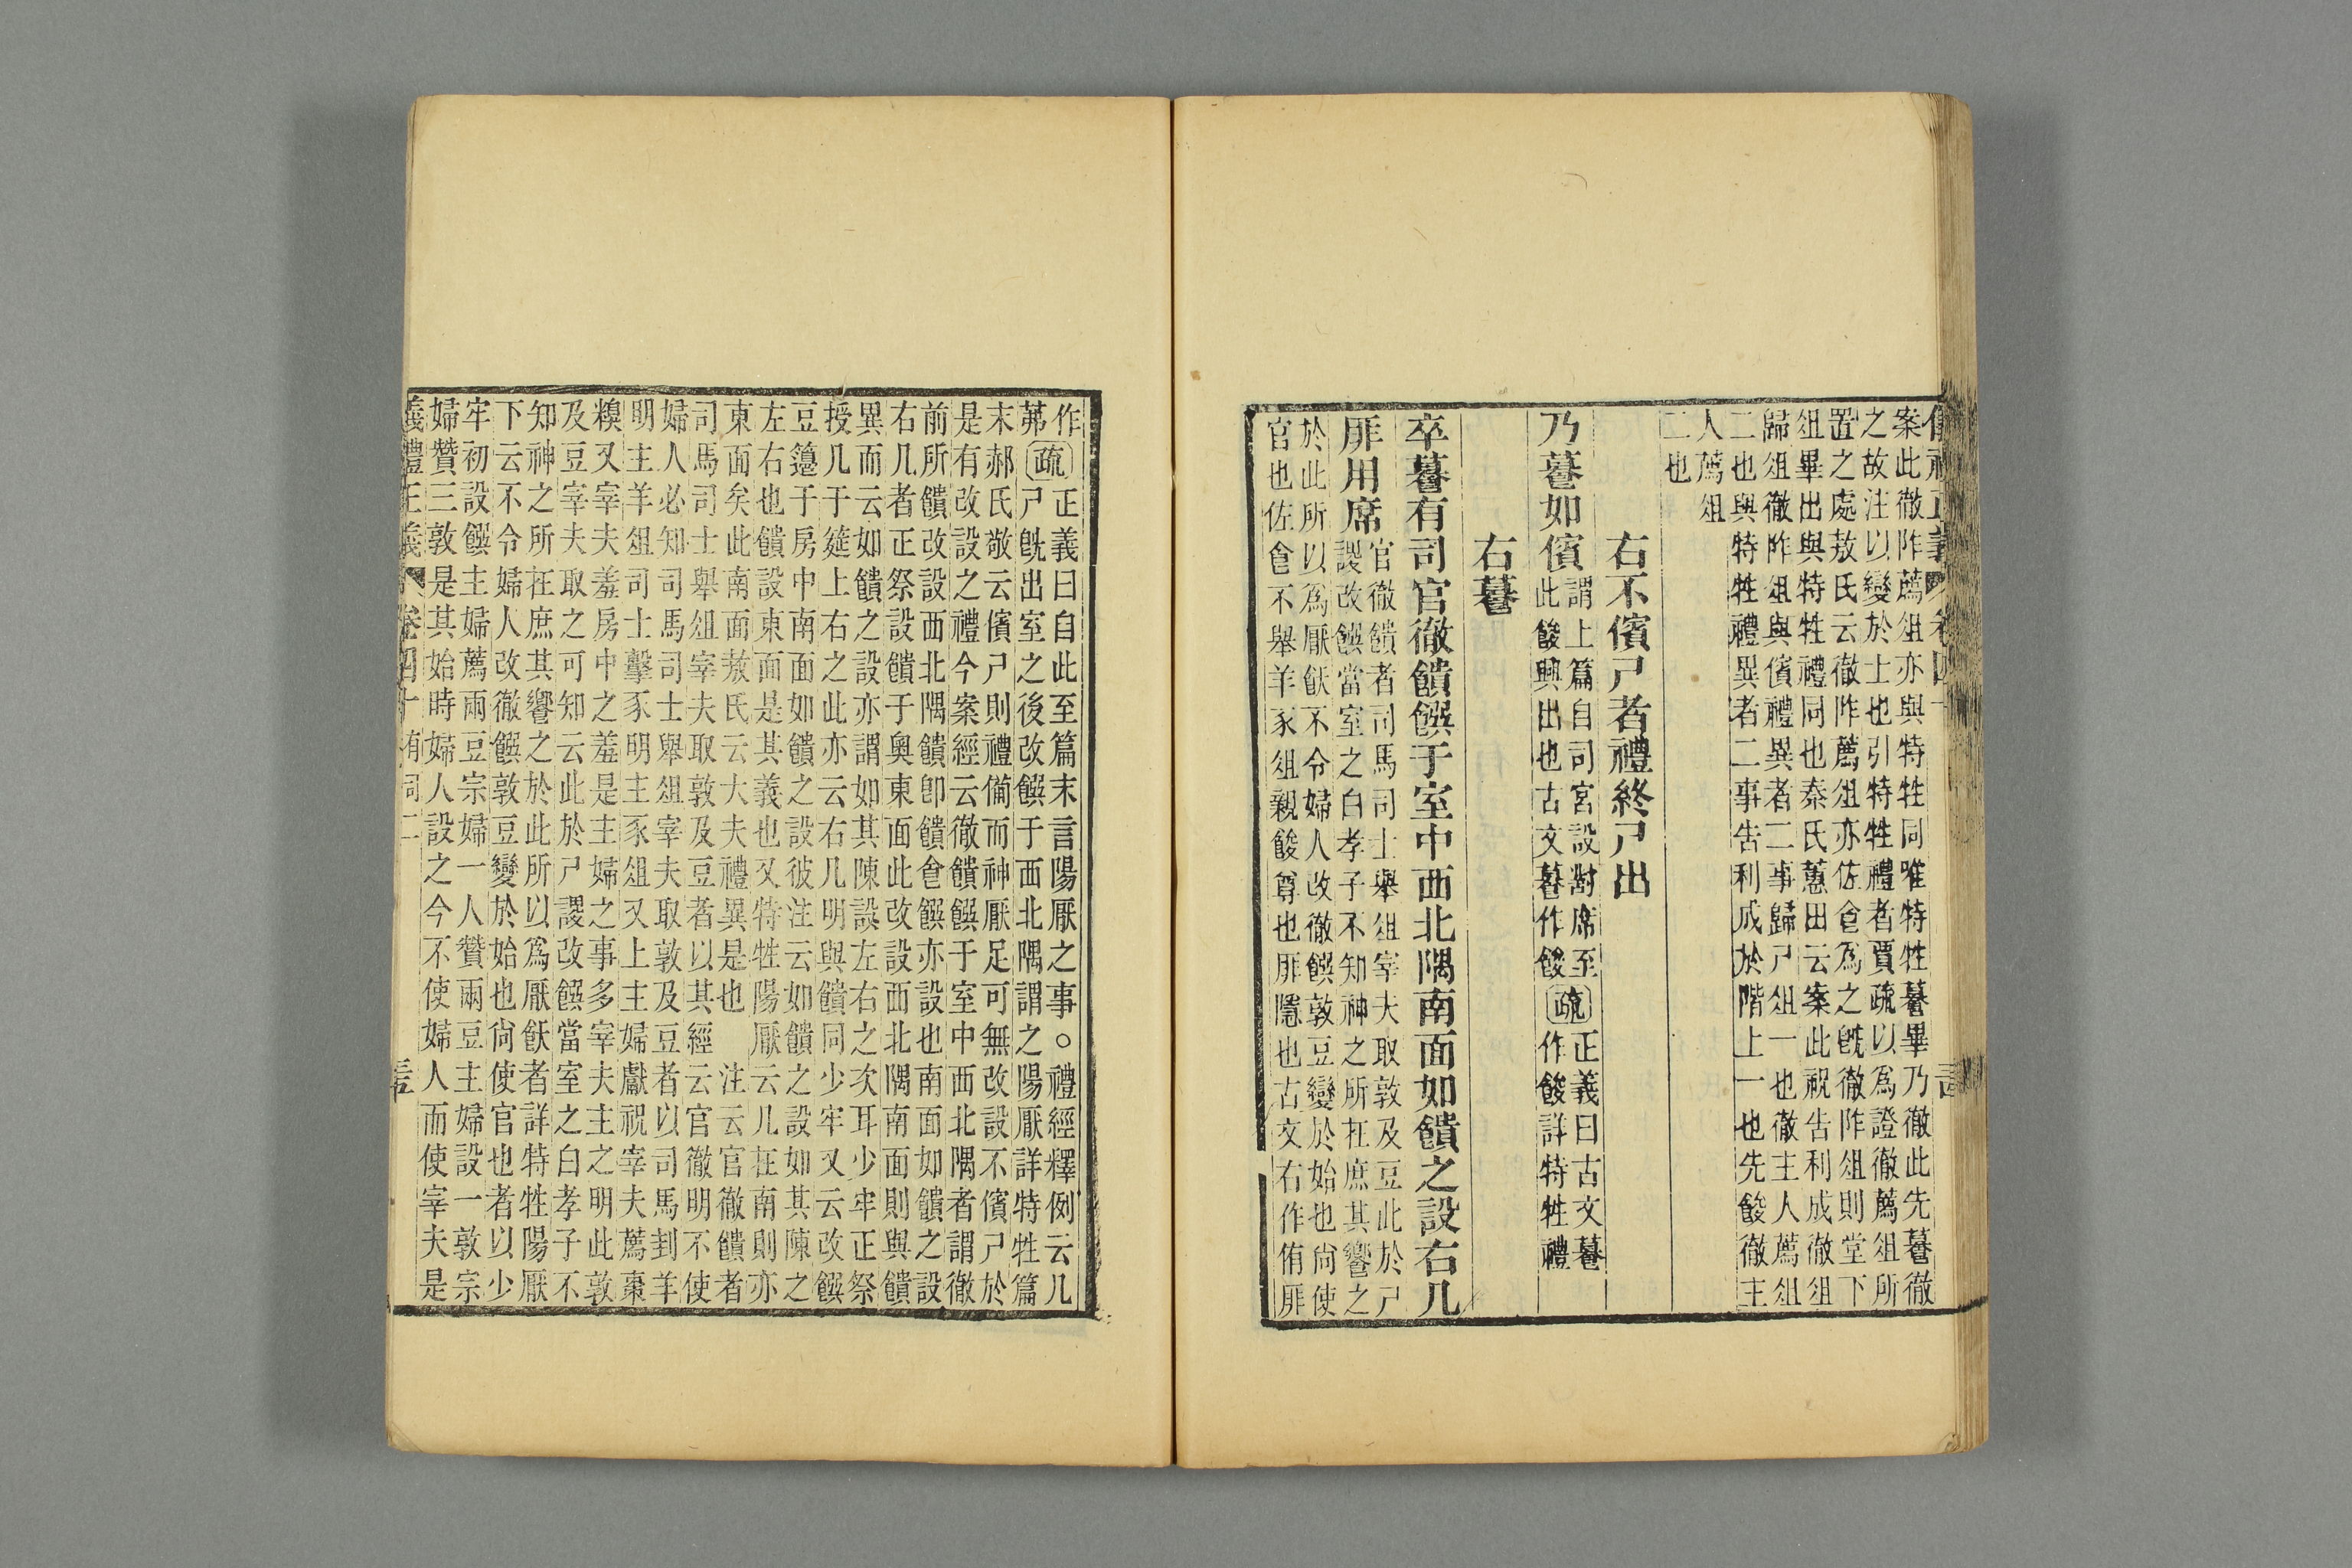 儀禮正義 卷四十
案此徹阼薦俎亦與特牲同唯特牲䭆畢乃徹此先䭆徹
之故注以變於士也引特牲禮者賈疏以爲證徹薦俎所
置之處敖氏云徹阼薦俎亦佐食爲之旣徹阼俎則堂下
俎畢出與特牲禮同也秦氏蕙田云案此祝告利成徹俎
歸俎徹阼俎與儐禮異者二事歸尸俎一也徹主人薦俎
二也與特牲禮異者二事告利成於階上一也先餕徹主
人薦俎
二也
右不儐尸者禮終尸出
乃䭆如儐
謂上篇自司宮設對席至
此餕興出也古文䭆作餕
疏
正義曰古文䭆
作餕詳特牲禮
右䭆
卒䭆有司官徹饋饌于室中西北隅南面如饋之設右几
厞用席
官徹饋者司馬司士舉俎宰夫取敦及豆此於尸
謖改饌當室之白孝子不知神之所在庶其饗之
於此所以爲厭飫不令婦人改徹饌敦豆變於始也尙使
官也佐食不舉羊豕俎親餕尊也厞隱也古文右作侑厞
作
茀
疏
正義曰自此至篇末言陽厭之事○禮經釋例云凡
尸旣出室之後改饌于西北隅謂之陽厭詳特牲篇
末郝氏敬云儐尸則禮備而神厭足可無改設不儐尸於
是有改設之禮今案經云徹饋饌于室中西北隅者謂徹
前所饋改設西北隅饋卽饋食饌亦設也南面如饋之設
右几者正祭設饋于奧東面此改設西北隅南面則與饋
異而云如饋之設亦謂如其陳設左右之次耳少牢正祭
授几于筵上右之此亦云右几明與饋同少牢又云改饌
豆籩于房中南面如饋之設彼注云如饋之設如其陳之
左右也饋設東面是其義也又特牲陽厭云几在南則亦
東面矣此南面敖氏云大夫禮異是也 注云官徹饋者
司馬司士舉俎宰夫取敦及豆者以其經云官徹明不使
婦人必知司馬司士舉俎宰夫取敦及豆者以司馬刲羊
明主羊俎司士擊豕明主豕俎又上主婦獻祝宰夫薦棗
糗又宰夫羞房中之羞是主婦之事多宰夫主之明此敦
及豆宰夫取之可知云此於尸謖改饌當室之白孝子不
知神之所在庶其饗之於此所以爲厭飫者詳特牲陽厭
下云不令婦人改徹饌敦豆變於始也尙使官也者以少
牢初設饌主婦薦兩豆宗婦一人贊兩豆主婦設一敦宗
婦贊三敦是其始時婦人設之今不使婦人而使宰夫是
儀禮正義 卷四十 有司二